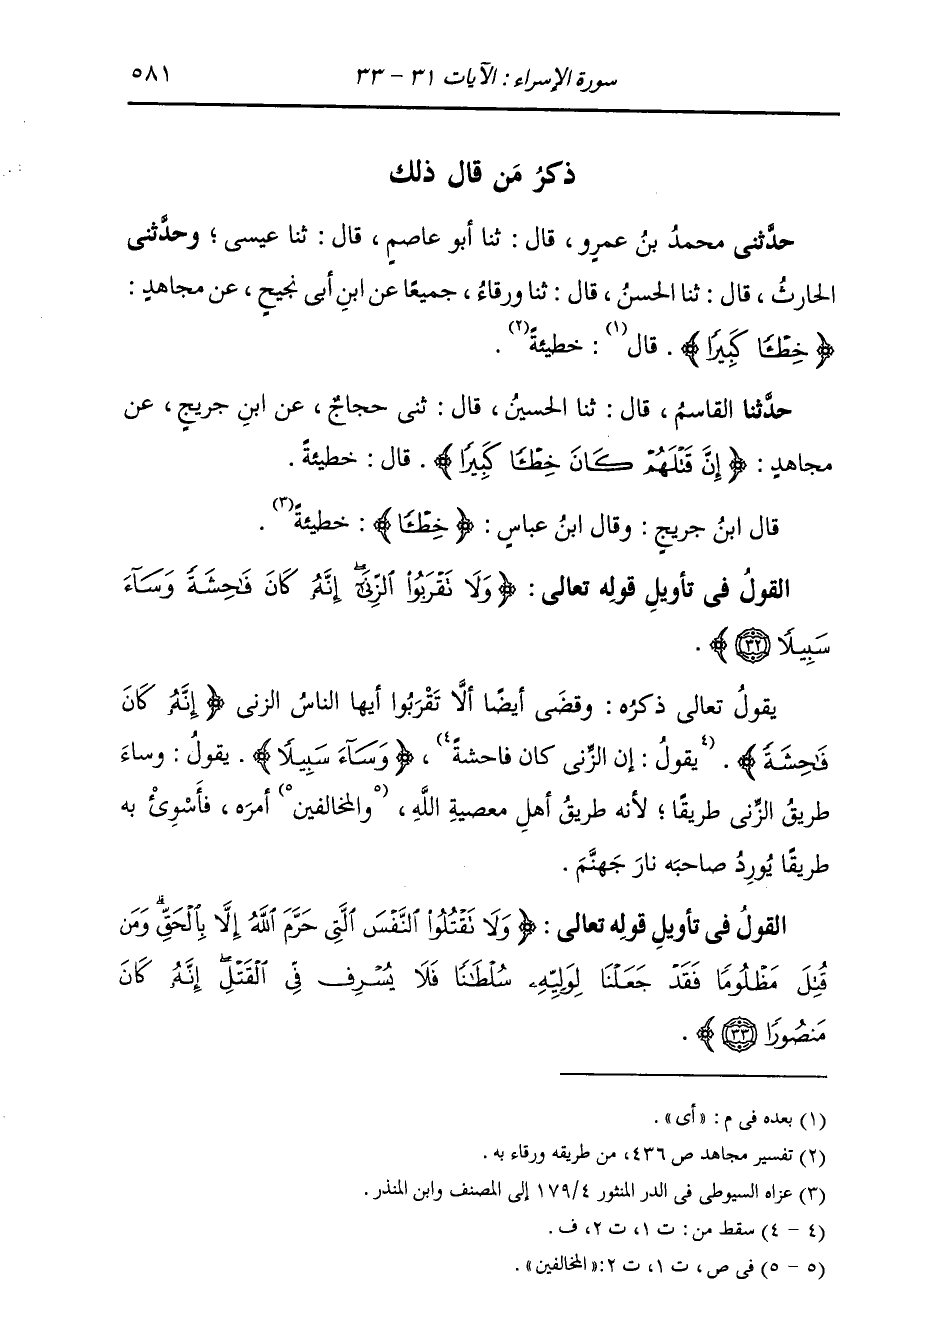 سورة الإسراء : الآيات ٣١ - ٣٣ ٥٨١
ذكرُ مَن قال ذلك
حدَّثنى محمدُ بنُ عمرٍو ، قال : ثنا أبو عاصمٍ ، قال : ثنا عيسى ؛ وحدَّثنى
الحارثُ ، قال : ثنا الحسنُ ، قال : ثنا ورقاءُ ، جميعًا عن ابنِ أبى نجيحٍ ، عن مجاهدٍ :
﴿ خِطْـًٔا كَبِيرًا ﴾ . قال(١) : خطيئةً(٢) .
حدَّثنا القاسمُ ، قال : ثنا الحسينُ ، قال : ثنى حجاجٌ ، عن ابنِ جريجٍ ، عن
مجاهدٍ : ﴿ إِنَّ قَتْلَهُمْ كَانَ خِطْـًٔا كَبِيرًا ﴾ . قال : خطيئةً .
قال ابنُ جريجٍ : وقال ابنُ عباسٍ : ﴿ خِطْـًٔا ﴾ : خطيئةً(٣) .
القولُ فى تأويلِ قولِه تعالى : ﴿ وَلَا نَقْرَبُوا۟ ٱلزِّنَىٰٓ ۖ إِنَّهُۥ كَانَ فَـٰحِشَةً وَسَآءَ
سَبِيلًا ٣٢ ﴾ .
يقولُ تعالى ذكرُه : وقضَى أيضًا ألَّا تَقْرَبُوا أيها الناسُ الزنى ﴿ إِنَّهُۥ كَانَ
فَـٰحِشَةً ﴾ . (٤يقولُ : إن الزِّنى كان فاحشةً٤) ، ﴿ وَسَآءَ سَبِيلًا ﴾ . يقولُ : وساءَ
طريقُ الزِّنى طريقًا ؛ لأنه طريقُ أهلِ معصيةِ اللَّهِ ، (٥والمخالفين٥) أمرَه ، فأَسْوِئْ به
طريقًا يُورِدُ صاحبَه نارَ جَهنَّمَ .
القولُ فى تأويلِ قولِه تعالى : ﴿ وَلَا نَقْتُلُوا۟ ٱلنَّفْسَ ٱلَّتِى حَرَّمَ ٱللَّهُ إِلَّا بِٱلْحَقِّ ۗ وَمَن
قُتِلَ مَظْلُومًا فَقَدْ جَعَلْنَا لِوَلِيِّهِۦ سُلْطَـٰنًا فَلَا يُسْرِف فِّى ٱلْقَتْلِ ۖ إِنَّهُۥ كَانَ
مَنصُورًا ٣٣ ﴾ .
(١) بعده فى م : «أى» .
(٢) تفسير مجاهد ص ٤٣٦، من طريقه ورقاء به .
(٣) عزاه السيوطى فى الدر المنثور ١٧٩/٤ إلى المصنف وابن المنذر .
(٤ - ٤) سقط من : ت ١، ت ٢، ف .
(٥ - ٥) فى ص ، ت ١، ت ٢: «المخالفين» .